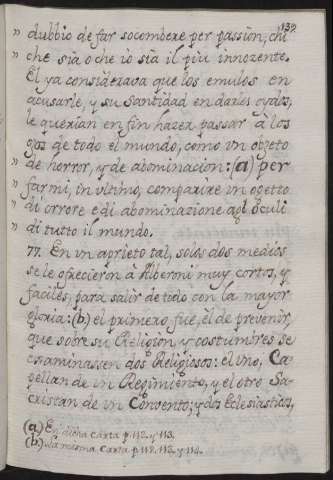 139.
" dubbio de far socombere per passion, chi
" che sia o che io sia il piu innozente.
El ya considerava que los emulos en
acusarle, y su Santidad en darles oydos,
le querian en fin hazer passar à los
ojos de todo el mundo, como un objeto
" de horror, y de abominacion: (a) per
" farmi, in ultimo, comparire in ogetto
" di orrore e di abominazione agl'Oculi
" di tutto il mundo.
77. En un aprieto tal, solos dos medios
se le ofrecieron à Alberoni muy cortos, y
faciles, para salir de todo con la mayor
gloria: (b) el primero fue, èl de prevenir,
que sobre su Religion, y costumbres se
examinassen dos Religiosos: el uno, Ca-
pellan de un Regimiento, y el otro Sa-
cristan de un Convento; y dos Eclesiasticos,
(a) En dicha carta p. 112. y 113.
(b) La misma Carta p. 112. 113. y 114.